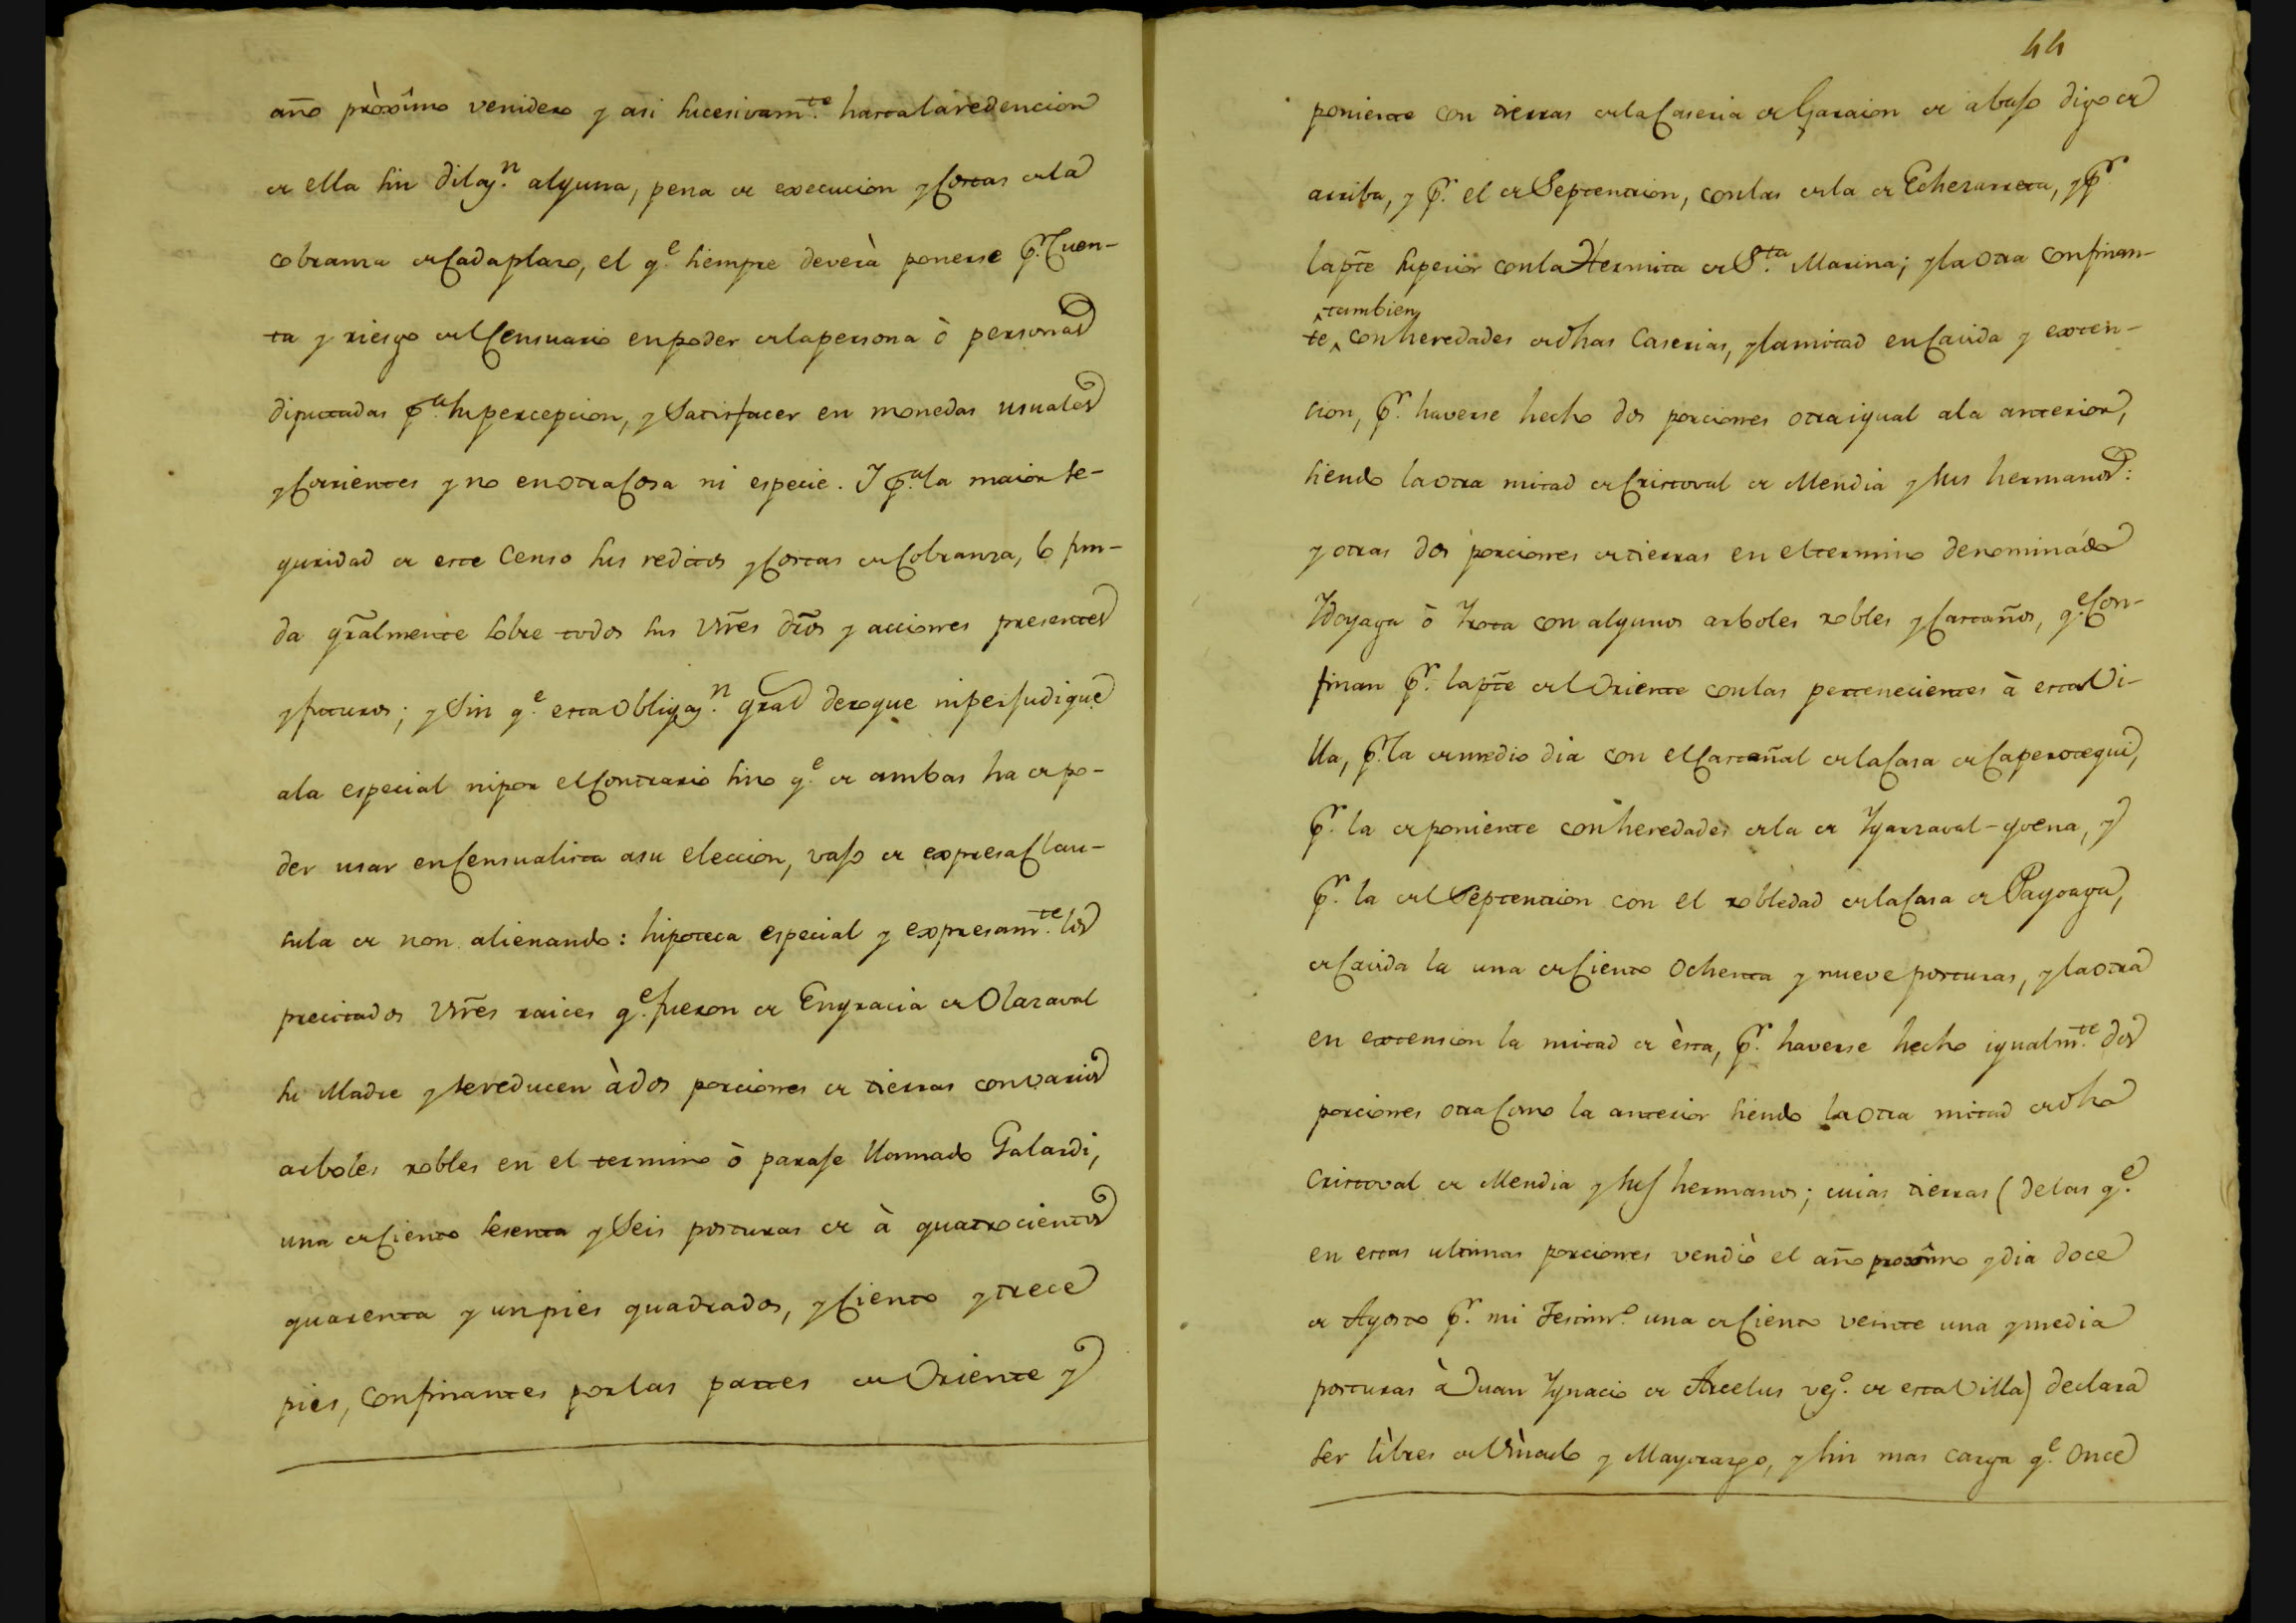 año pròxîmo venidero y asi sucesivam.te hasta la redencion
de ella sin dilaz.n alguna, pena de execucion y Costas de la
cobranza de Cada plazo, el q.e siempre deverà ponerse p.r Cuen-
ta y riesgo del Censuario en poder de la persona ò personas
diputadas p.a su percepcion, y Satisfacer en monedas usuales
y Corrientes y no en otra Cosa ni especie. Y p.a la maior se-
guridad de este Censo sus reditos y Costas de Cobranza, lo fun-
da gr̃almente sobre todos sus Vñes dr̃os y acciones presentes
y futuros; y Sin q.e esta Obligaz.n gr̃al derogue ni perjudique
a la especial ni por el Contrario sino q.e de ambas ha de po-
der usar en Censualista a su eleccion, vajo de expresa Clau-
sula de non alienando: hipoteca especial y expresam.te los
precitados Vñes raices q.e fueron de Engracia de Olazaval
su Madre y se reducen à dos porciones de tierras con varios
arboles robles en el termino ò paraje llamado Galardi,
una de Ciento sesenta y Seis posturas de à quatrocientos
quarenta y un pies quadrados, y Ciento y trece
pies, Confinantes por las partes de Oriente y
44
poniente con tierras de la Caseria de Garaion de abajo digo de
arriba, y p.r el de Septentrion, con las de la de Echezarreta, y p.r
la pt̃e superior con la Hermita de S.ta Marina; y la otra confinan-
tambien
te, con heredades de dhas Caserias, y la mitad en Cavida y exten-
cion, p.r haverse hecho dos porciones otra igual a la anterior,
siendo la otra mitad de Cristoval de Mendia y sus hermanos:
y otras dos porciones de tierras en el termino denominádo
Ydoyaga ò Yrota con algunos arboles robles y Castaños, q.e Con-
finan p.r la pt̃e del Oriente con las pertenecientes à esta Vi-
lla, p.r la de medio dia con el Castañal de la Casa de Caperotegui,
p.r la de poniente con heredades de la de Ygarzaval-goena, y
p.r la del Septentrion con el robledad de la Casa de Pagoaga,
de Cavida la una de Ciento Ochenta y nueve posturas, y la otra
en extension la mitad de èsta, p.r haverse hecho igualm.te dos
porciones otra Como la anterior siendo la otra mitad de dho
Cristoval de Mendia y sus hermanos; cuias tierras (de las q.e
en estas ultimas porciones vendiò el año proxîmo y dia doce
de Agosto p.r mi Testim.o una de Ciento veinte una y media
posturas à Juan Ygnacio de Arcelus vez.o de esta Villa) declara
ser lìbres de Vìnculo y Mayorazgo, y sin mas carga q.e once